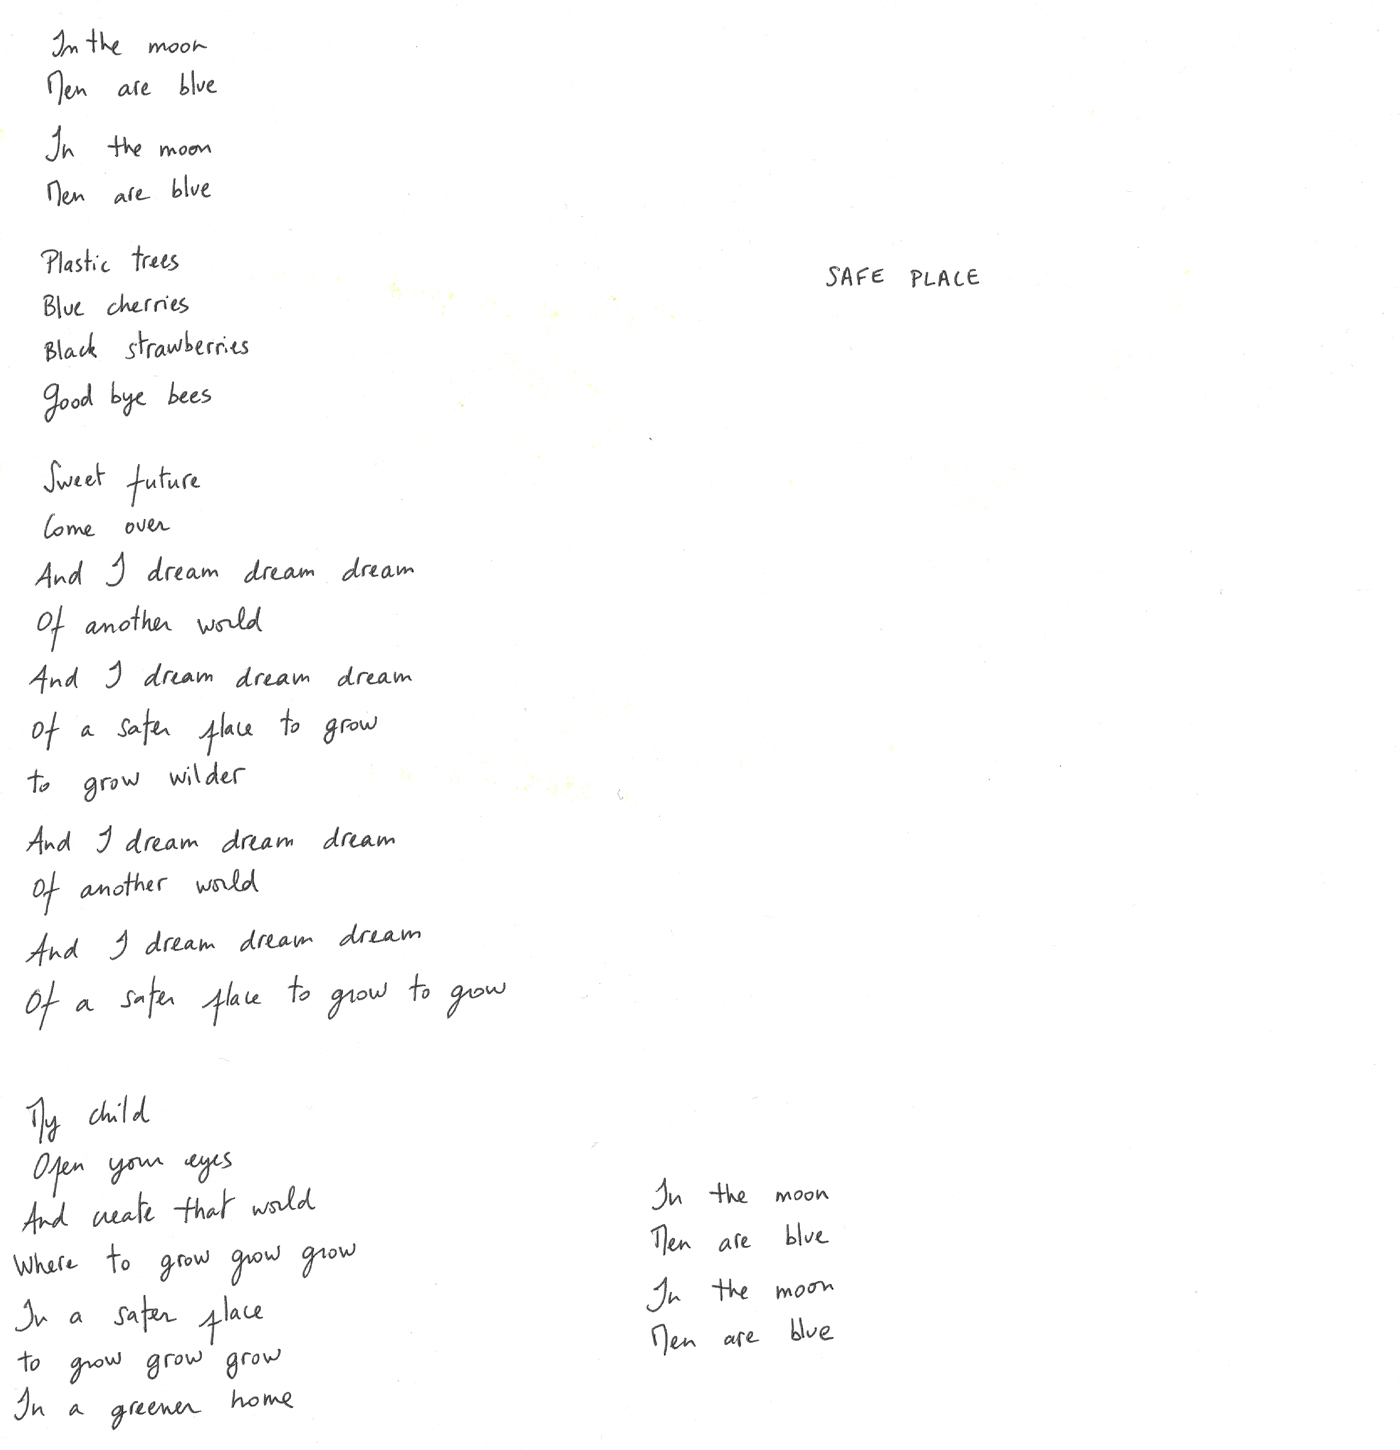 In the moon
Men are blue
In the moon
Men are blue
Plastic trees
Blue cherries
Black strawberries
Good bye bees
SAFE PLACE
Sweet future
Come over
And I dream dream dream
Of another world
And I dream dream dream
Of a safer place to grow
to grow wilder
And I dream dream dream
Of another world
And I dream dream dream
Of a safer place to grow to grow
My child
Open your eyes
And create that world
Where to grow grow grow
In a safer place
to grow grow grow
In a greener home
In the moon
Men are blue
In the moon
Men are blue